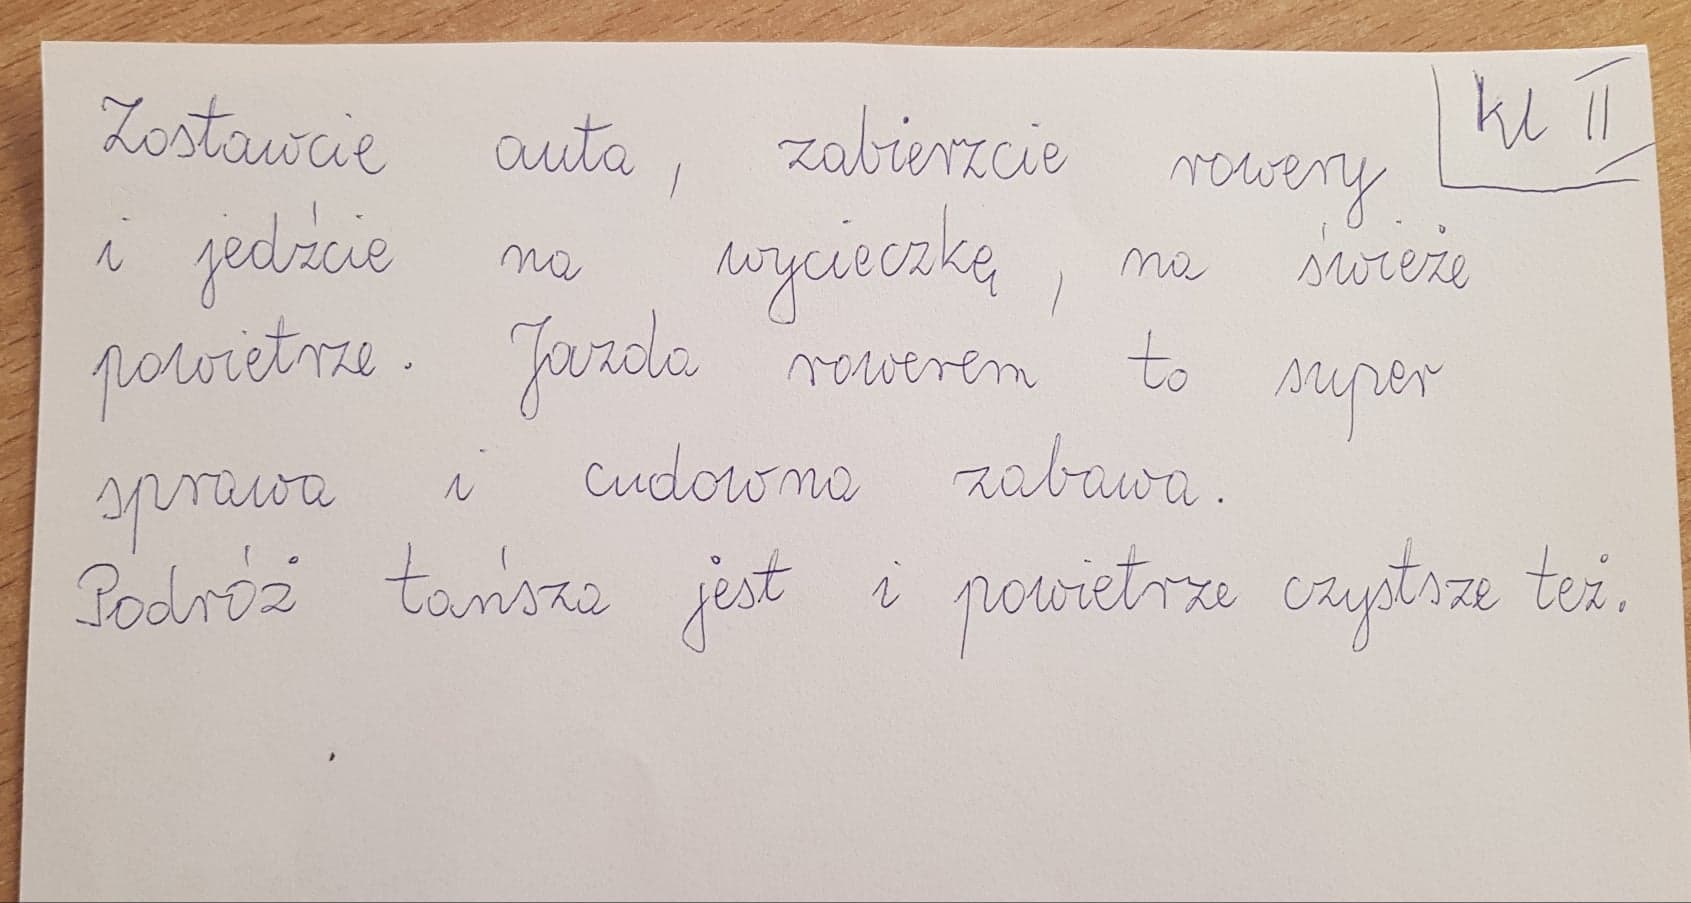 Zostawcie auta, zabierzcie rowery
kl II
i jedźcie na wycieczkę, na świeże
powietrze. Jazda rowerem to super
sprawa i cudowna zabawa.
Podróż tańsza jest i powietrze czystsze też.